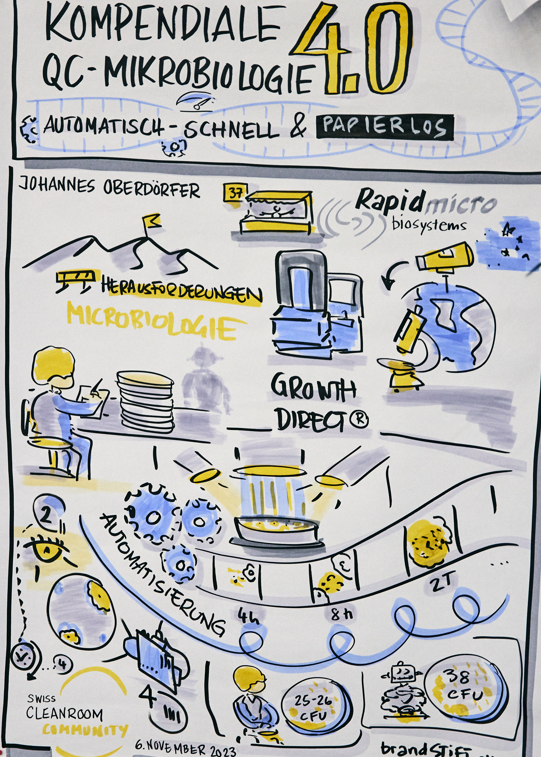 KOMPENDIALE 4.0
QC-MIKROBIOLOGIE
AUTOMATISCH - SCHNELL & PAPIERLOS
JOHANNES OBERDÖRFER
37
Rapidmicro
biosystems
HERAUSFORDERUNGEN
MICROBIOLOGIE
GROWTH
DIRECT®
2
AUTOMATISIERUNG
4h
8h
2T
...
4
4
38
CFU
25-26
CFU
SWISS
CLEANROOM
COMMUNITY
6. NOVEMBER 2023
brandStift